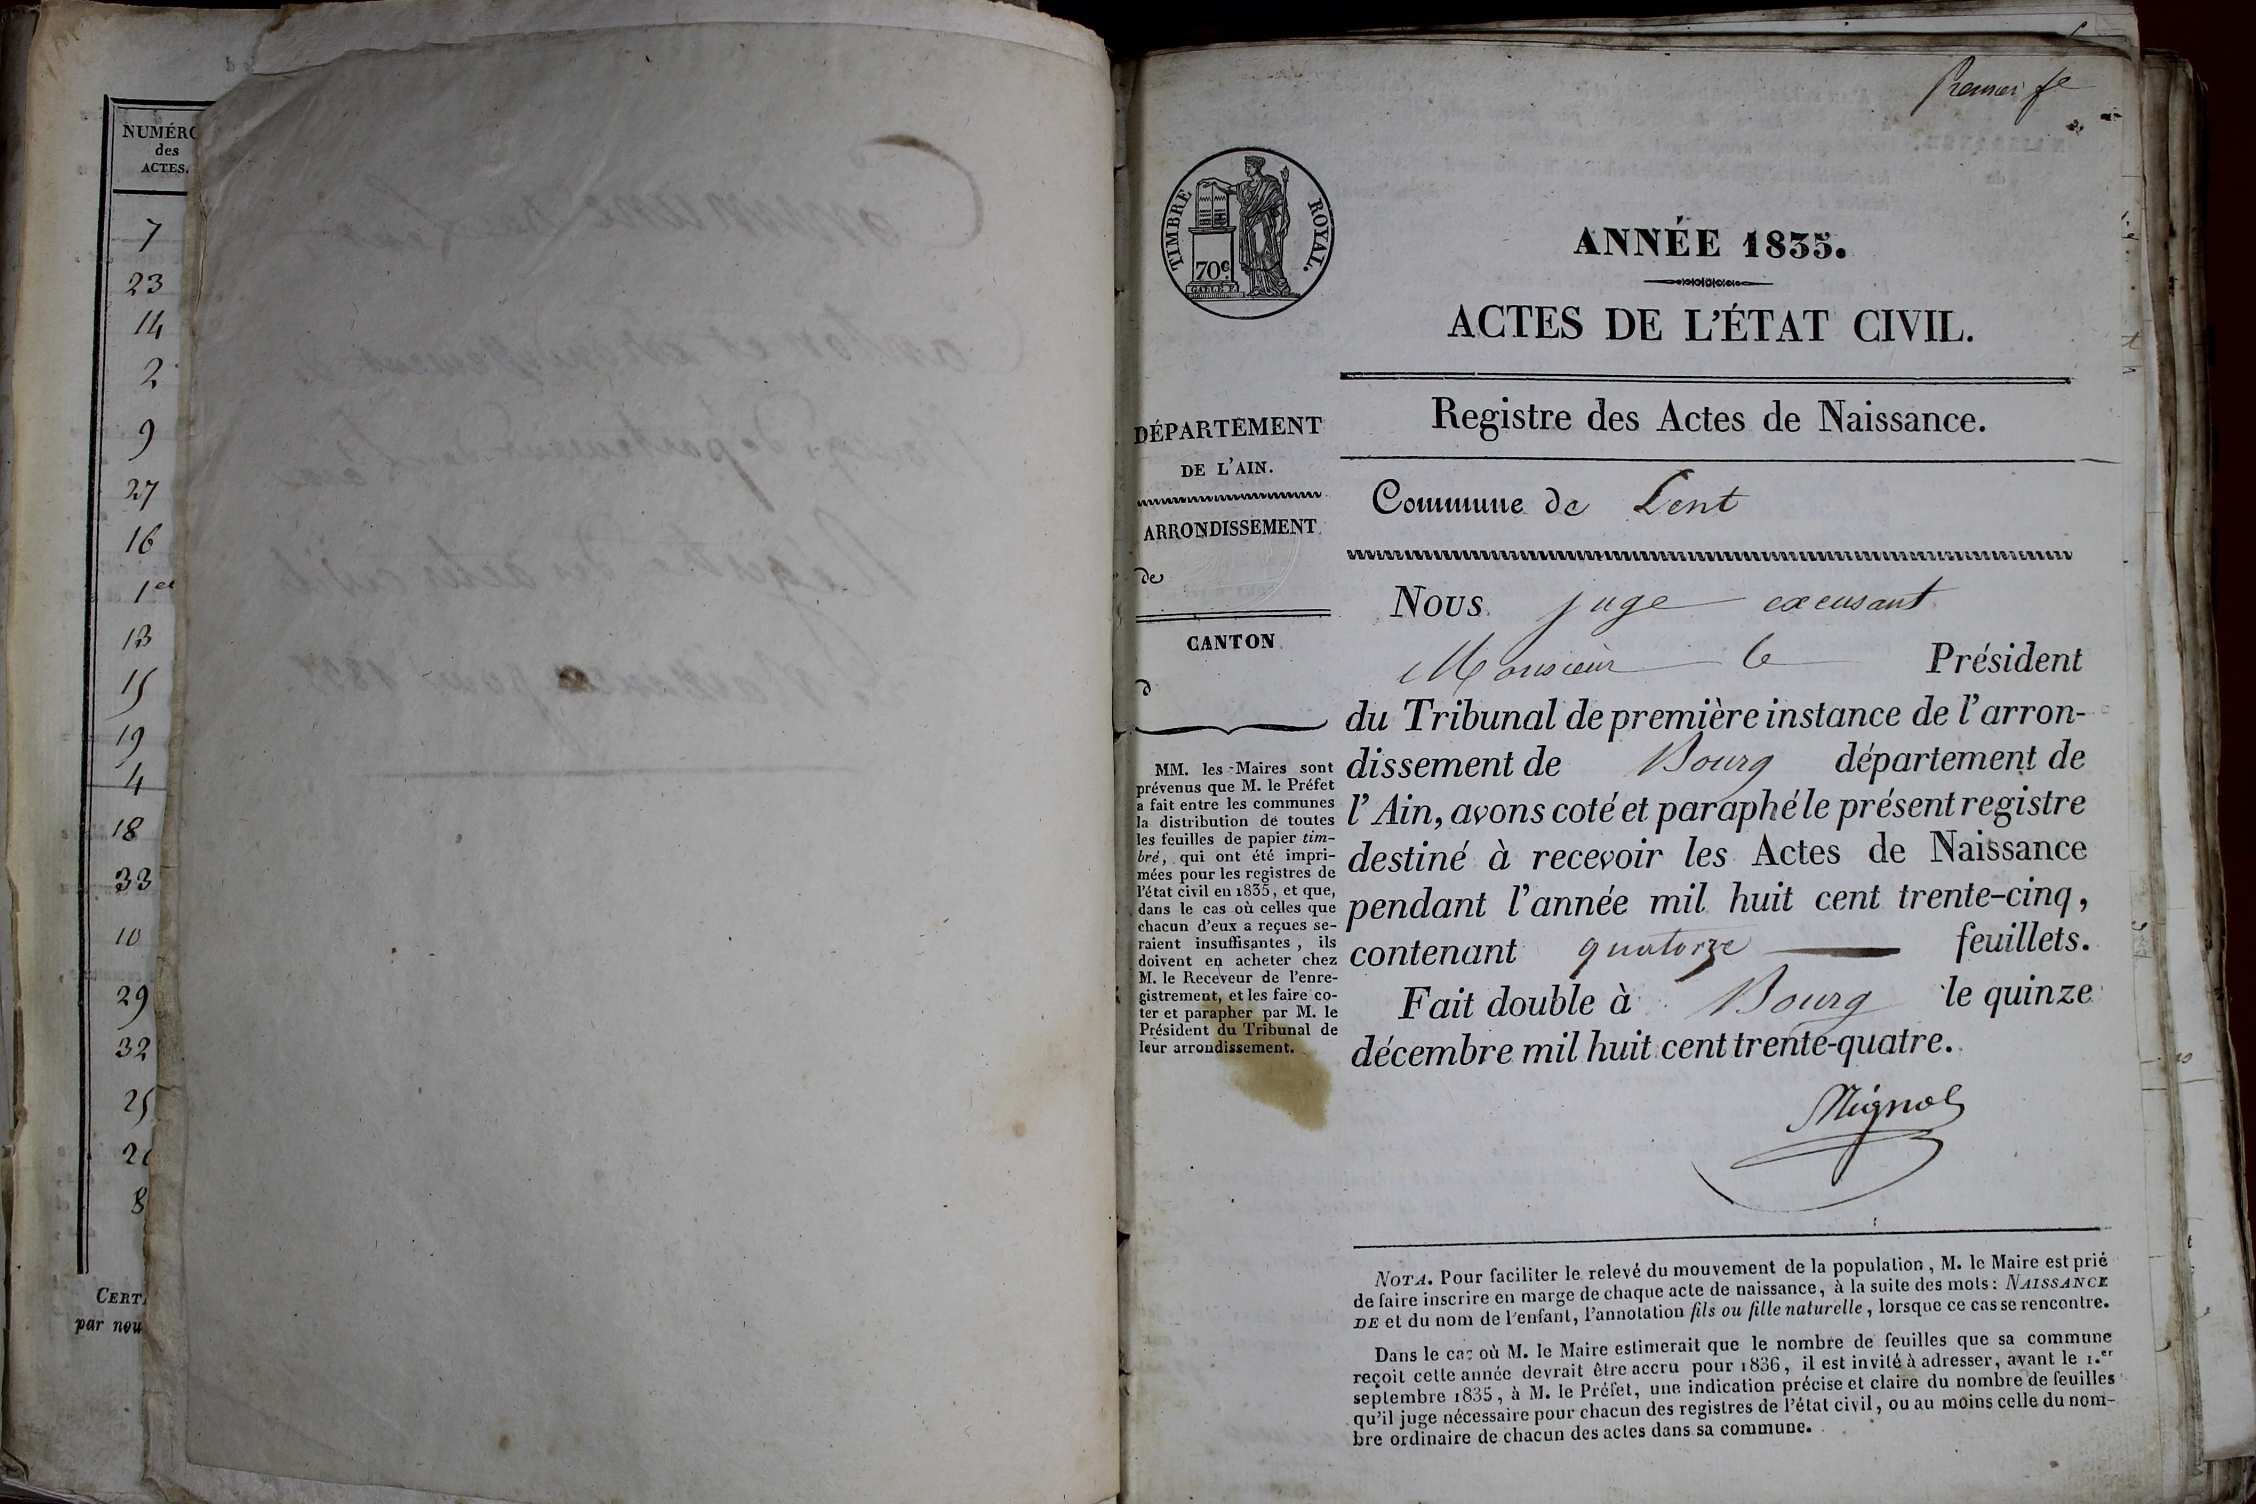 NUMÉRO
des
ACTES.
7
23
14
2
9
27
16
1er
13
15
19
4
18
33
10
29
32
25
8
CERT
par nou
Premier
TIMBRE ROYAL.
70c
ANNÉE 1835.
ACTES DE L'ÉTAT CIVIL.
Registre des Actes de Naissance.
DÉPARTEMENT
DE L'AIN.
ARRONDISSEMENT
de
CANTON
d
MM. les Maires sont
prévenus que M. le Préfet
a fait entre les communes
la distribution de toutes
les feuilles de papier tim-
bré, qui ont été impri-
mées pour les registres de
l'état civil en 1835, et que,
dans le cas où celles que
chacun d'eux a reçues se-
raient insuffisantes, ils
doivent en acheter chez
M. le Receveur de l'enre-
gistrement, et les faire co-
ter et parapher par M. le
Président du Tribunal de
leur arrondissement.
Commune de Lent
Nous juge excusant
Monsieur le Président
du Tribunal de première instance de l'arron-
dissement de Bourg département de
l'Ain, avons coté et paraphé le présent registre
destiné à recevoir les Actes de Naissance
pendant l'année mil huit cent trente-cinq,
contenant quatorze feuillets.
Fait double à Bourg le quinze
décembre mil huit cent trente-quatre.
NOTA. Pour faciliter le relevé du mouvement de la population, M. le Maire est prié
de faire inscrire en marge de chaque acte de naissance, à la suite des mots: NAISSANCE
DE et du nom de l'enfant, l'annotation fils ou fille naturelle, lorsque ce cas se rencontre.
Dans le cas où M. le Maire estimerait que le nombre de feuilles que sa commune
reçoit cette année devrait être accru pour 1836, il est invité à adresser, avant le 1.er
septembre 1835, à M. le Préfet, une indication précise et claire du nombre de feuilles
qu'il juge nécessaire pour chacun des registres de l'état civil, ou au moins celle du nom-
bre ordinaire de chacun des actes dans sa commune.